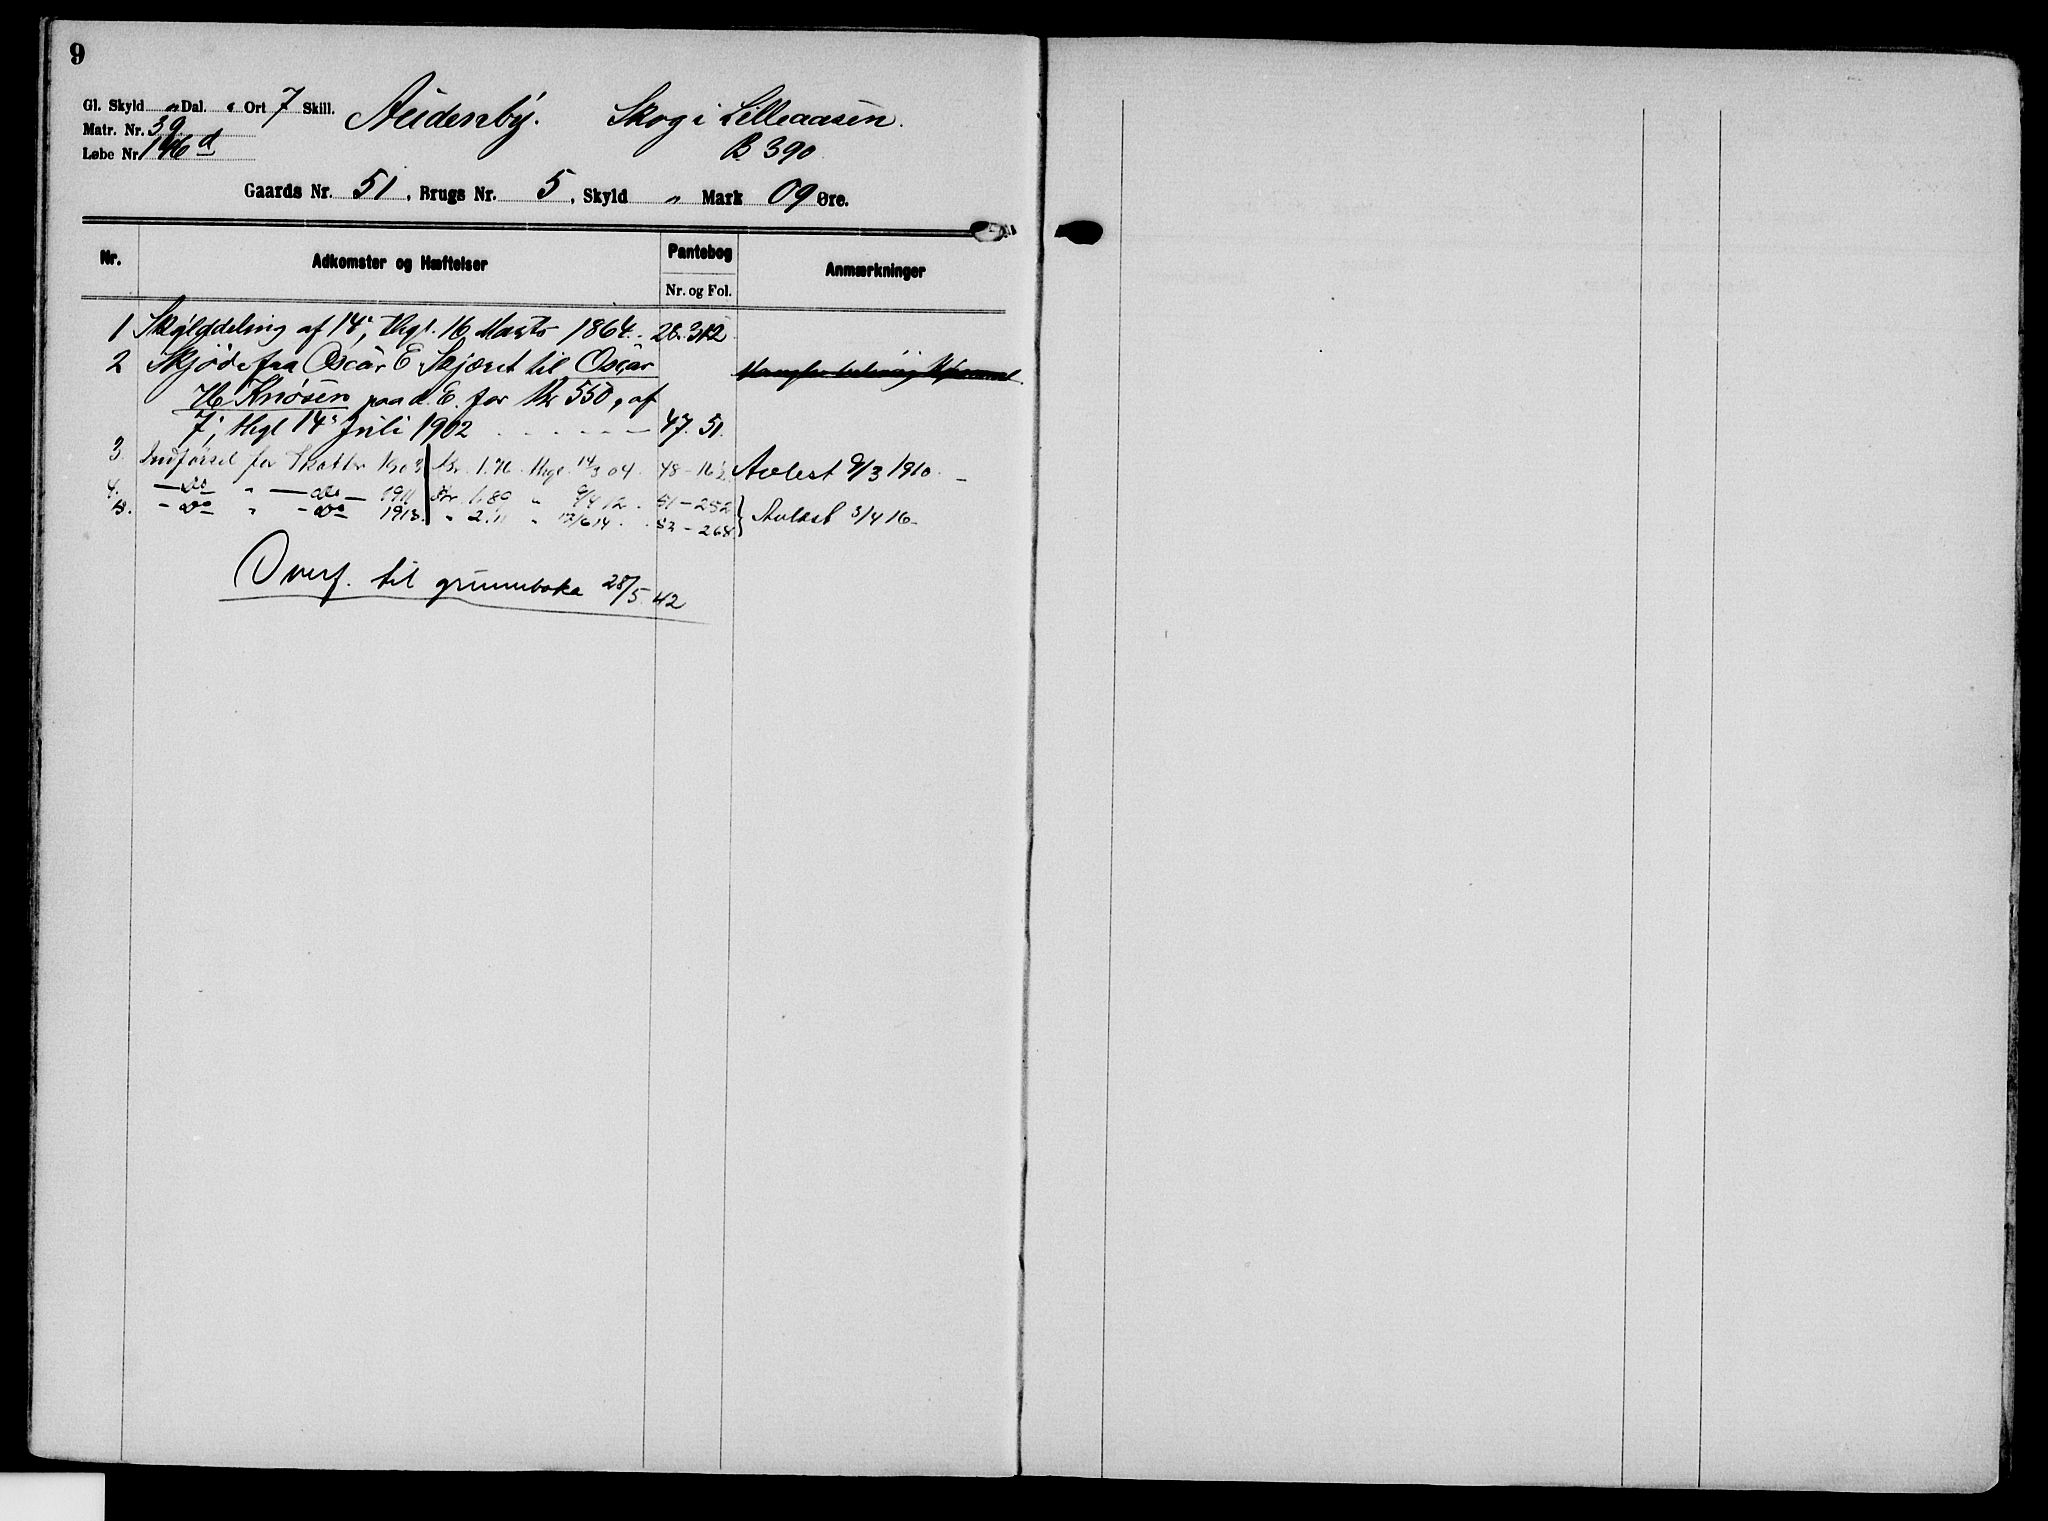 9
Gl. Skyld " Dal. " Ort 7 Skill. Audenby. Skog i Lilleaasen.
Matr. Nr. 39
Løbe Nr. 146 d B 390
Gaards Nr. 51, Brugs Nr. 5, Skyld " Mark 09 Øre.
Nr. Adkomster og Hæftelser Pantebog Nr. og Fol. Anmærkninger
1 Skylddeling af 14, thgl. 16 Marts 1864. 28. 312
2 Skjøde fra Oscar E Skjæret til Oscar
H Knøsen paa d. E. for Kr 550, af
7, thgl 14 Juli 1902 47. 51.
3. Indførsel for Skatter 1903 Kr. 1.76 thgl. 14/3 04. 48 - 162 Avlest 9/3 1910 -
4. - Do " - do - 1911 Kr 1.80 " 9/4 12. 51 - 252
5. - Do " - Do 1913. " 2.11 " 12/6 14. 52 - 268. Avlæst 3/4 16 -
Overf. til grunnboka 28/5.42